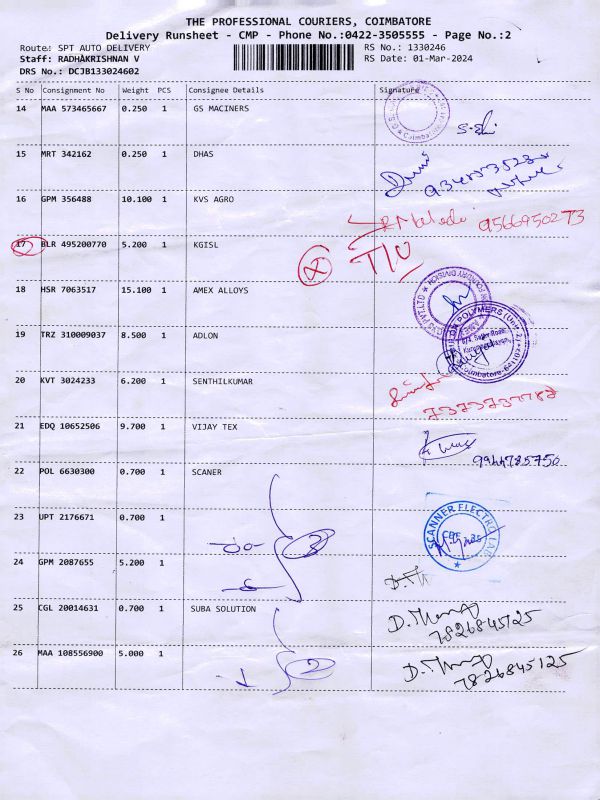 THE PROFESSIONAL COURIERS, COIMBATORE
Delivery Runsheet - CMP - Phone No.:0422-3505555 - Page No.:2
Route: SPT AUTO DELIVERY RS No.: 1330246
Staff: RADHAKRISHNAN V RS Date: 01-Mar-2024
DRS No.: DCJB133024602
S No Consignment No Weight PCS Consignee Details Signature
14 MAA 573465667 0.250 1 GS MACINERS
15 MRT 342162 0.250 1 DHAS
16 GPM 356488 10.100 1 KVS AGRO
9566950273
17 BLR 495200770 5.200 1 KGISL
18 HSR 7063517 15.100 1 AMEX ALLOYS
19 TRZ 310009037 8.500 1 ADLON
20 KVT 3024233 6.200 1 SENTHILKUMAR
7373737787
21 EDQ 10652506 9.700 1 VIJAY TEX
9944785750
22 POL 6630300 0.700 1 SCANER
23 UPT 2176671 0.700 1
SCANNER ELECTRO LAB
24 GPM 2087655 5.200 1
25 CGL 20014631 0.700 1 SUBA SOLUTION
7826845125
26 MAA 108556900 5.000 1
2
7826845125